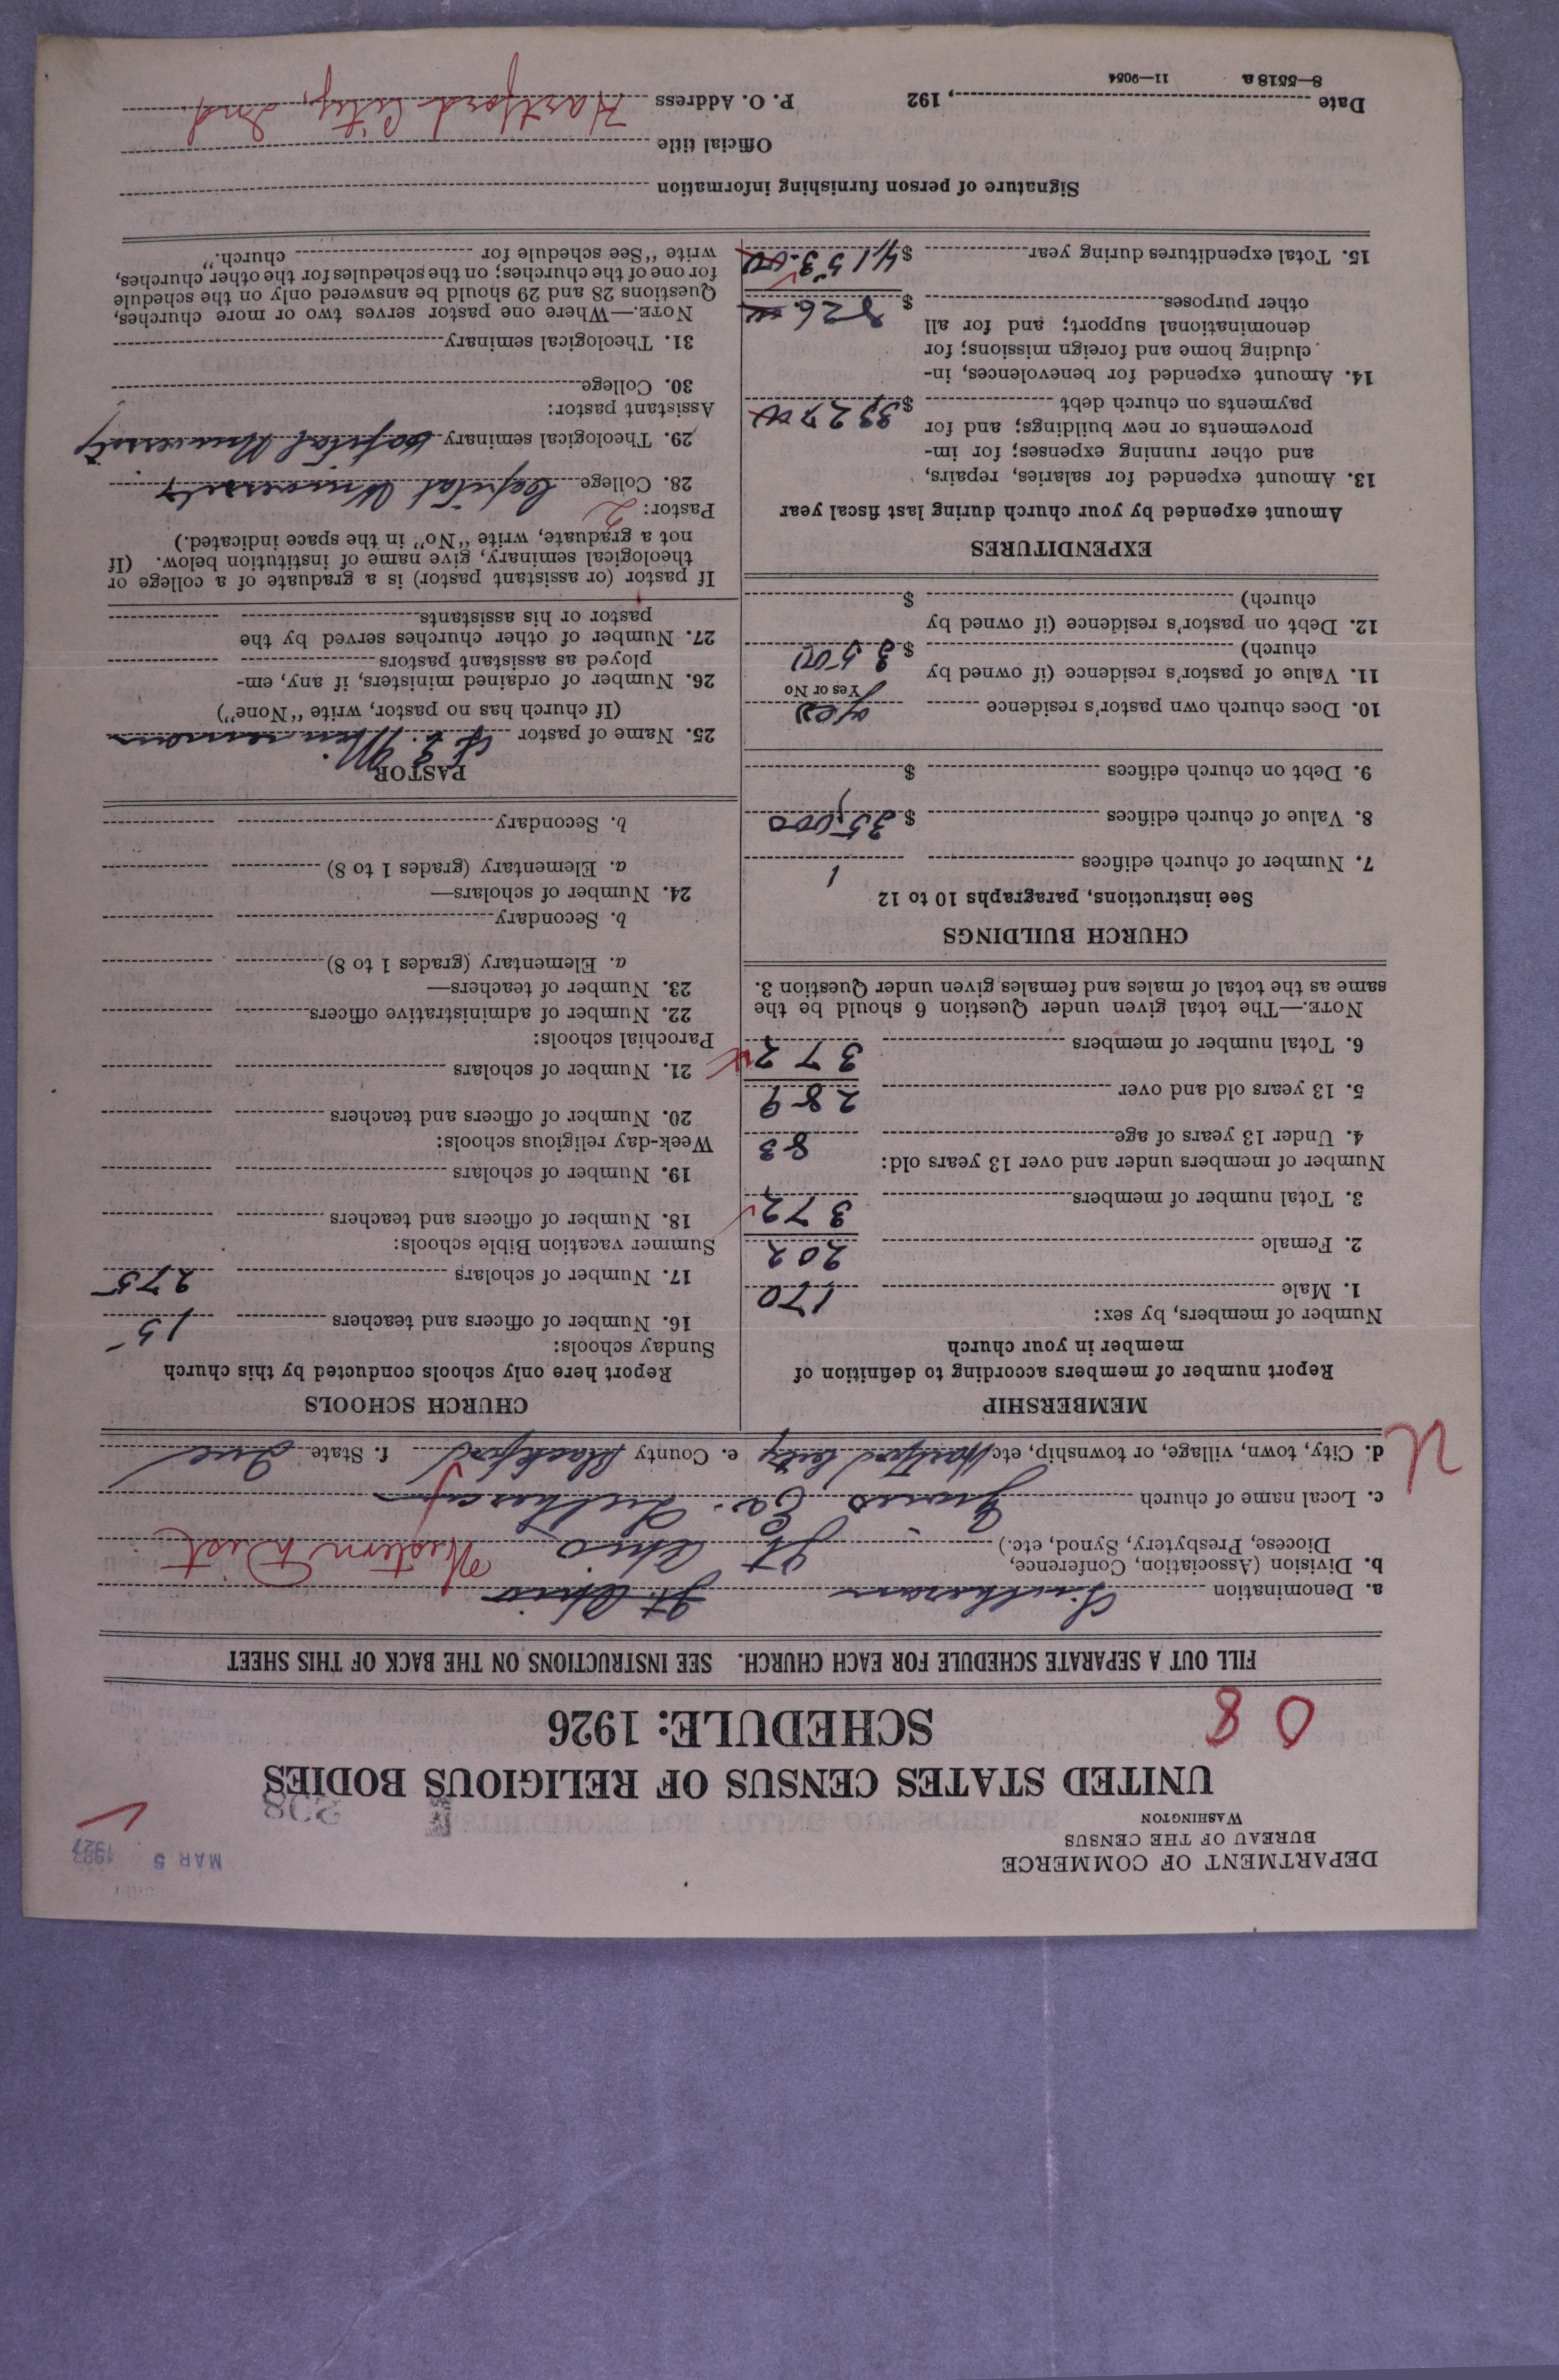 DEPARTMENT OF COMMERCE
BUREAU OF THE CENSUS
WASHINGTON
MAR 5 1927
UNITED STATES CENSUS OF RELIGIOUS BODIES
SCHEDULE: 1926
0 8
FILL OUT A SEPARATE SCHEDULE FOR EACH CHURCH. SEE INSTRUCTIONS ON THE BACK OF THIS SHEET
a. Denomination Lutheran Jt. Ohio
b. Division (Association, Conference,
Diocese, Presbytery, Synod, etc.) Jt Ohio Western Dist
c. Local name of church Ev. Lutheran
d. City, town, village, or township, etc. Hartford City e. County Blackford f. State Ind
MEMBERSHIP
Report number of members according to definition of
member in your church
Number of members, by sex:
1. Male 170
2. Female 202
3. Total number of members 372
Number of members under and over 13 years old:
4. Under 13 years of age 83
5. 13 years old and over 289
6. Total number of members 372
NOTE.—The total given under Question 6 should be the
same as the total of males and females given under Question 3.
CHURCH BUILDINGS
See instructions, paragraphs 10 to 12
7. Number of church edifices 1
8. Value of church edifices $ 35,000
9. Debt on church edifices $
10. Does church own pastor's residence yes
Yes or No
11. Value of pastor's residence (if owned by
church) $ 3500
12. Debt on pastor's residence (if owned by
church) $
EXPENDITURES
Amount expended by your church during last fiscal year
13. Amount expended for salaries, repairs,
and other running expenses; for im-
provements or new buildings; and for
payments on church debt $ 3327.00
14. Amount expended for benevolences, in-
cluding home and foreign missions; for
denominational support; and for all
other purposes $ 826.00
15. Total expenditures during year $ 4153.00
CHURCH SCHOOLS
Report here only schools conducted by this church
Sunday schools:
16. Number of officers and teachers 15
17. Number of scholars 275
Summer vacation Bible schools:
18. Number of officers and teachers
19. Number of scholars
Week-day religious schools:
20. Number of officers and teachers
21. Number of scholars
Parochial schools:
22. Number of administrative officers
23. Number of teachers—
a. Elementary (grades 1 to 8)
b. Secondary
24. Number of scholars—
a. Elementary (grades 1 to 8)
b. Secondary
PASTOR
25. Name of pastor
(If church has no pastor, write "None")
26. Number of ordained ministers, if any, em-
ployed as assistant pastors
27. Number of other churches served by the
pastor or his assistants
If pastor (or assistant pastor) is a graduate of a college or
theological seminary, give name of institution below. (If
not a graduate, write "No" in the space indicated.)
Pastor: 2
28. College Capital University
29. Theological seminary Capital University
Assistant pastor:
30. College
31. Theological seminary
NOTE.—Where one pastor serves two or more churches,
Questions 28 and 29 should be answered only on the schedule
for one of the churches; on the schedules for the other churches,
write "See schedule for church."
Signature of person furnishing information
Official title
Date , 192 P. O. Address Hartford City, Ind.
8—5518 a 11—9054